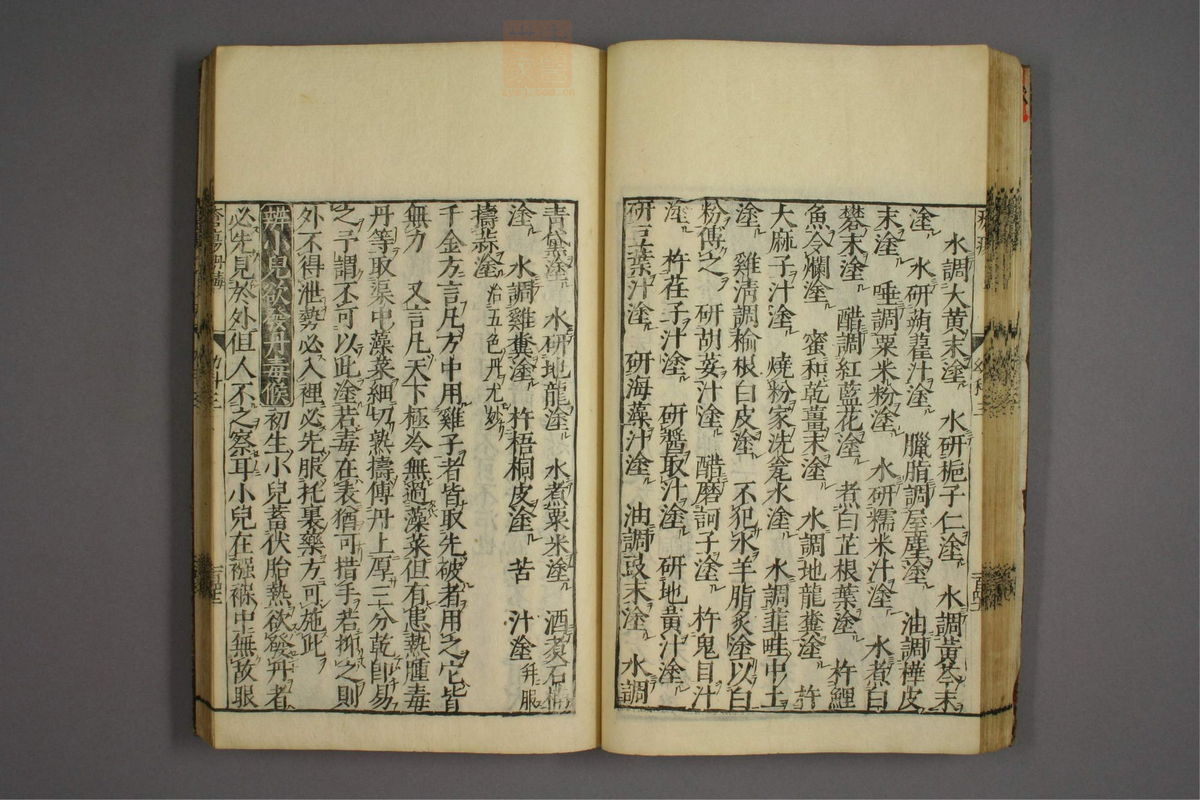 水調大黃末塗　水研梔子仁塗　水調黃芩末
塗　水研蒴藋汁塗　臘脂調屋塵塗　油調樺皮
末塗　唾調粟米粉塗　水研糯米汁塗　水煮白
礬末塗　醋調紅藍花塗　煮白芷根葉塗　杵鯉
魚令爛塗　蜜和乾薑末塗　水調地龍糞塗　杵
大麻子汁塗　燒粉家洗瓮水塗　水調韭畦中土
塗　雞清調榆根白皮塗　不犯水羊脂炙塗以白
粉傅之　研胡荽汁塗　醋磨訶子塗　杵鬼目汁
塗　杵荏子汁塗　研醬取汁塗　研地黃汁塗
研豆葉汁塗　研海藻汁塗　油調豉末塗　水調
青黛塗　水研地龍塗　水煮粟米塗　酒煮石
塗　水調雞糞塗　杵梧桐皮塗　苦　汁塗并服
擣蒜塗治五色丹尤妙
千金方言凡方中用雞子者皆取先破者用之它皆
無方　又言凡天下極冷無過藻菜但有患熱腫毒
丹等取渠中藻菜細切熟擣傅丹上厚三分乾即易
之予謂不可以此塗若毒在表猶可措手若抑之則
外不得泄勢必入裡必先服托裏藥方可施此
辨小兒欲發丹毒候　初生小兒蓄伏胎熱欲發丹者
必先見於外但人不之察耳小兒在襁褓中無故眼